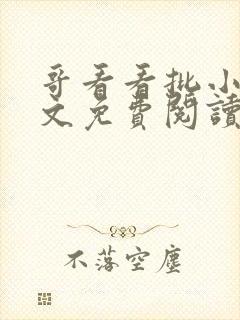 哥看看批小
文免費閱讀
不落空塵